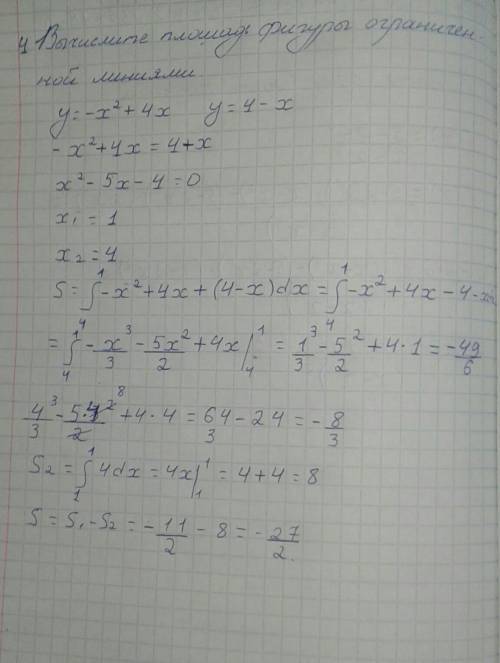 4 Вычислите площадь фигуры ограничен-
ной линиями
y = -x² + 4x y = 4 - x
- x² + 4x = 4 + x
x² - 5x - 4 = 0
x₁ = 1
x₂ = 4
S = ∫₄¹ -x² + 4x + (4-x)dx = ∫₄¹ -x² + 4x - 4
= ∫₄¹ -x³/3 - 5x²/2 + 4x |₄¹ = 1³/3 - 5²/2 + 4·1 = -49/6
4³/3 - 5·4²/2 + 4·4 = 64/3 - 24 = -8/3
S₂ = ∫₁¹ 4dx = 4x|₁¹ = 4 + 4 = 8
S = S₁ - S₂ = -11/2 - 8 = -27/2.